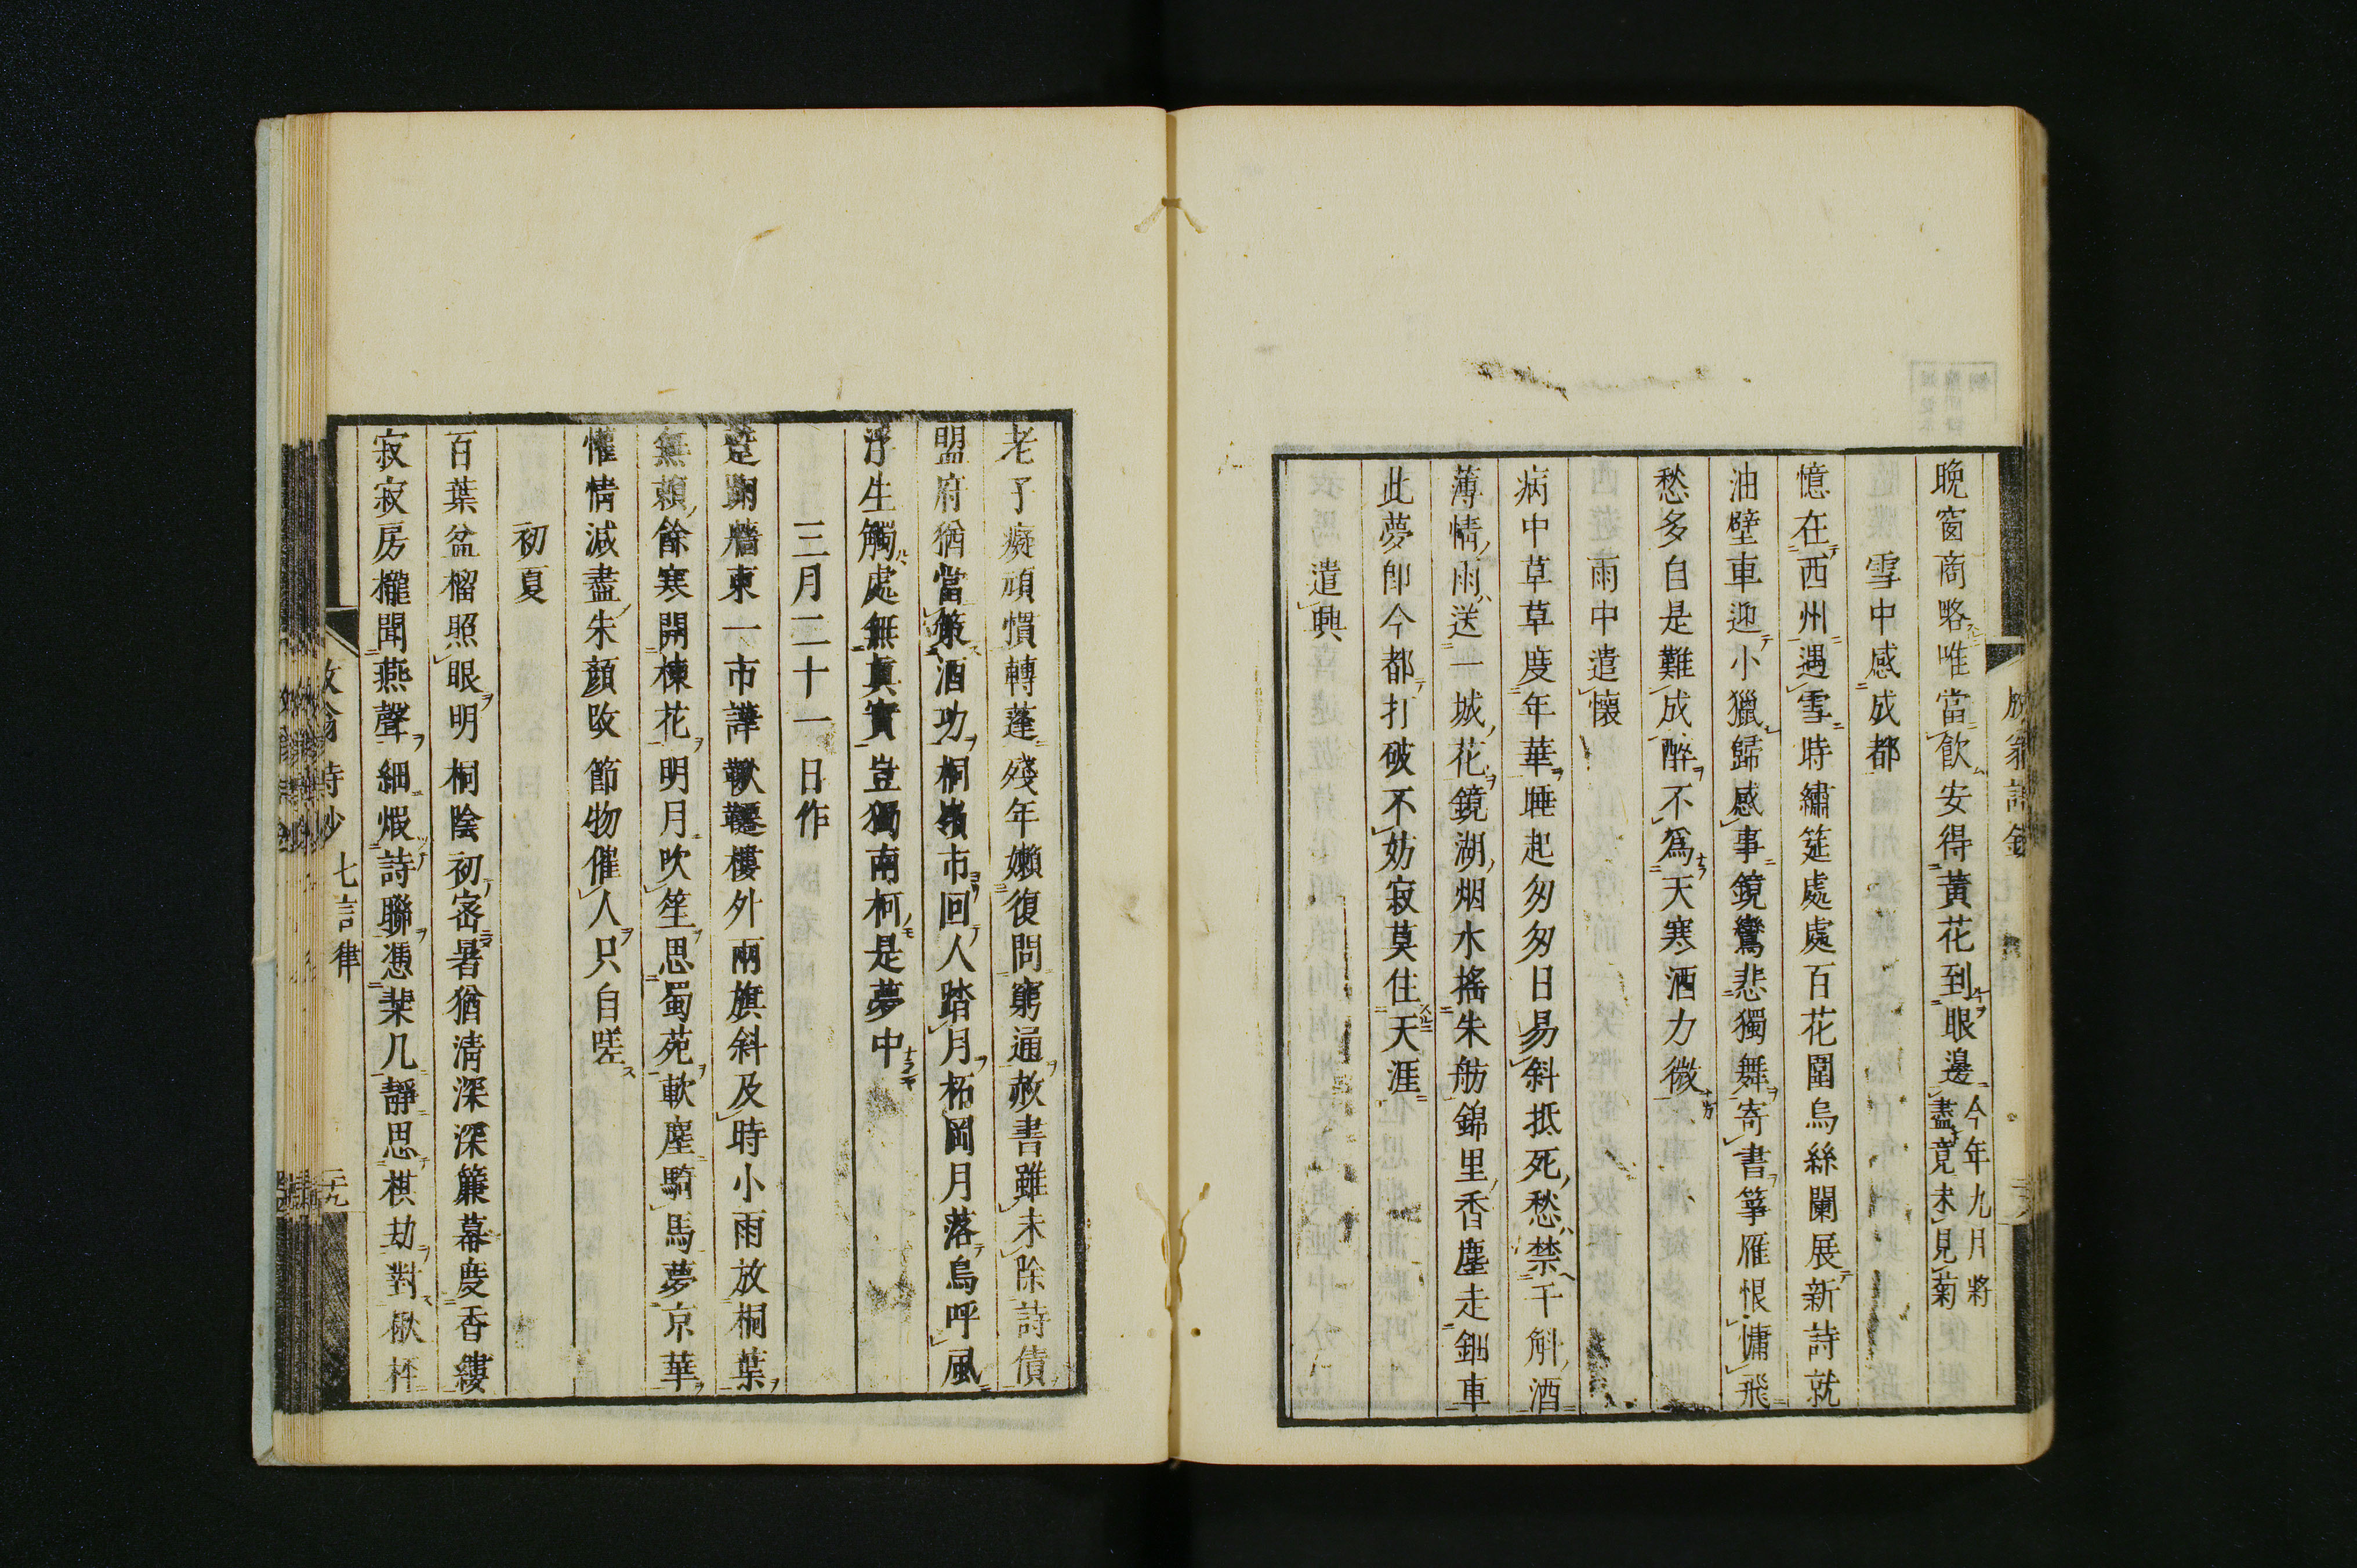 晩窗商略唯當飮安得黃花到眼邊今年九月將
盡竟未見菊
雪中感成都
憶在西州遇雪時繡筵處處百花圍烏絲闌展新詩就
油壁車迎小獵歸感事鏡鸞悲獨舞寄書箏雁恨慵飛
愁多自是難成醉不爲天寒酒力微
雨中遣懷
病中草草度年華睡起匆匆日易斜抵死愁禁千斛酒
薄情雨送一城花鏡湖烟水搖朱舫錦里香塵走鈿車
此夢卽今都打破不妨寂莫住天涯
遣興
老子癡頑慣轉蓬殘年嬾復問窮通赦書雖未除詩債
盟府猶當策酒功桐嶺市回人踏月柘岡月落烏呼風
浮生觸處無眞實豈獨南柯是夢中
三月二十一日作
蹴踘牆東一市譁鞦韆樓外兩旗斜及時小雨放桐葉
無賴餘寒開楝花明月吹笙思蜀苑軟塵騎馬夢京華
懽情減盡朱顏改節物催人只自嗟
初夏
百葉盆榴照眼明桐陰初密暑猶淸深深簾幕度香縷
寂寂房櫳聞燕聲細煅詩聯憑棐几靜思棋劫對楸枰
放翁詩鈔 七言律 二十九